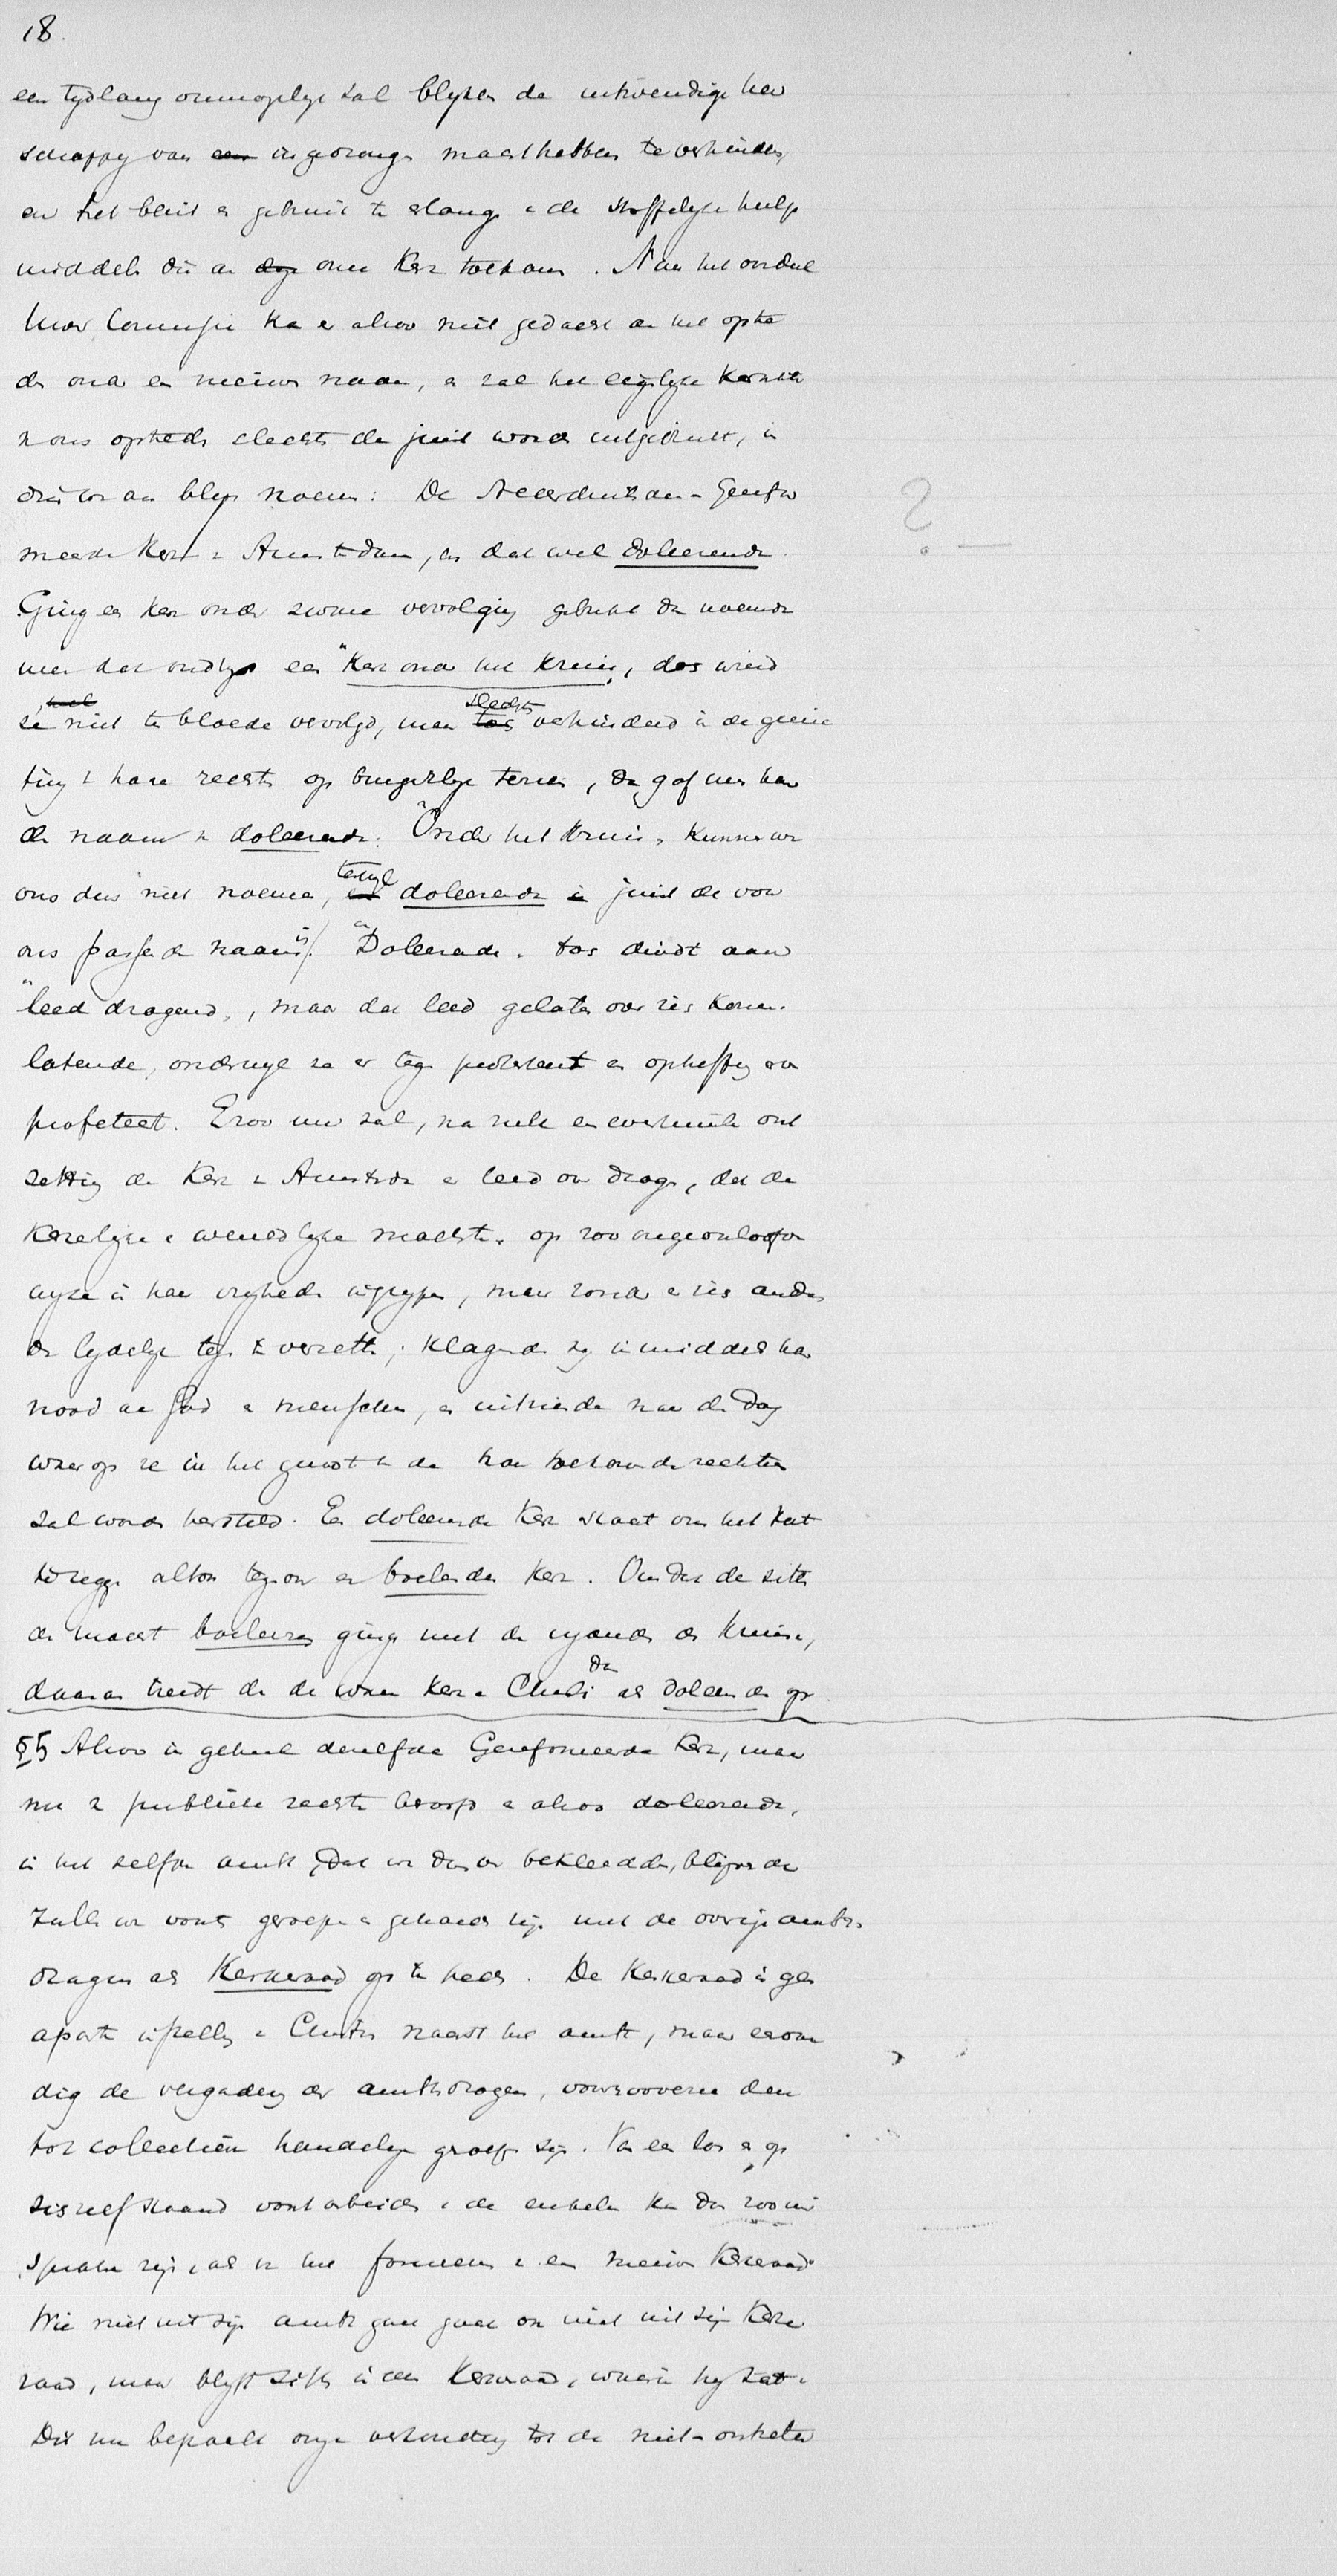 18.
een tydlang onmogelyk zal blyken de uitwendige heer
schappy van een ingedrongn machthebbers te verhinders,
en het bezit en gebruik te erlangn v de stoffelyke hulp
middelen die an deze onze Kerk toekomn. Naar het oordeel
Uwer Commissie kan er alzoo niet gedacht an het optre
den onder een nieuwen naam, en zal het eigenlyke karakter
v ons optreden slechts dan juist worden uitgedrukt, in
dien we ons blyvn noemen: De Nederduitsche-Gerefor
meerde Kerk v Amsterdam, en dat wel doleerende.
Ging een Kerk onder zware vervolging gebukt dan noemde
men dat oudtyds een "Kerk onder het Kruis", dos wierd
ze niet te bloede vervolgd, maar slechts verhinderd in de genie
ting v hare rechten op burgerlyk terrein, dan gaf men haar
den naam v doleerende. "Onder het Kruis" kunnen we
ons dus niet noemen, terwyl doleerende juist de voor
ons passende naam is. "Doleerende" tos duidt aan
"leed dragend", maar dat leed gelaten over zich komen
latende, onderwyl ze er tegn protesteert en opheffing er v
profeteert. Zoo nu zal, na
zetting de Kerk v Amsterdam er leed over dragn, dat de
Kerkelyke en wereldlyke machten op zoo ongeoorloofde
wyze in haar vryheden ingrypen, maar zonder er zich anders
dan lydelyk tegn te verzetten; klagende zy inmiddels haar
nood an God en menschen, en uitziende naar den dag
waarop ze in het genot v de haar toekomende rechten
zal worden hersteld. Een doleerende Kerk staat om het kort
te zeggn altoos tegenover een boeleerende Kerk. Omdat de zetel
der macht boeleeren ging met de vyanden des Kruises,
daarom treedt dan de ware Kerk v Christi dan als doleerende op
§5 Alzoo in geheel dezelfde Gereformeerde Kerk, maar
nu v publieke rechten beroofd en alzoo doleerende,
in het zelfde ambt, dat we daarin bekleedden, blyvende
zullen we voorts geroepn en gehouden zyn met de overige ambts
dragers als Kerkeraad op te treden. De Kerkeraad is geen
aparte instelling v Christus naast het ambt, maar eenvou
dig de vergadering der ambtsdragers, voorzooveren deze
tot collectieve handelingn geroepn zyn. Van een los en op
zich zelf staand voortarbeiden v de enkelen kan dan zoo min
sprake zyn, als v het formeeren v een nieuwen Kerkeraad.
Wie niet uit zyn ambt gaat gaat ook niet uit zyn Kerke
raad, maar blyft zitten in den Kerkeraad, waarin hy zat.
Dit nu bepaalt onze verhouding tot de niet-ontzette